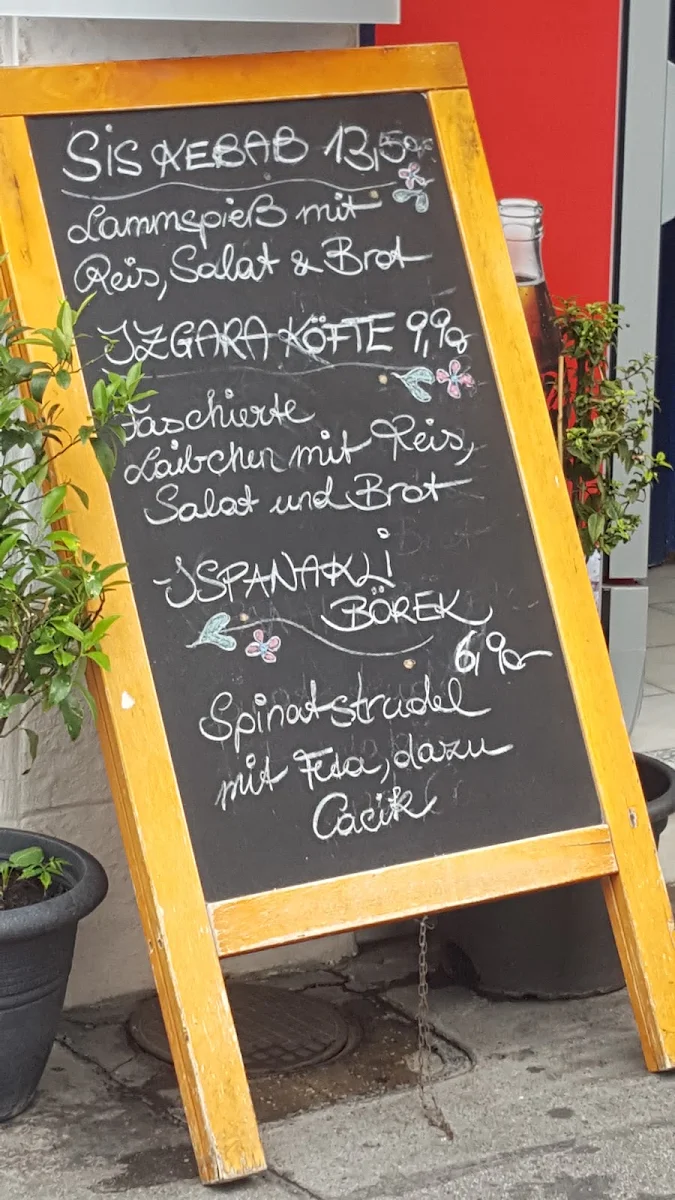 SiS KEBAB 13,50
Lammspieß mit
Reis, Salat & Brot
IZGARA KÖFTE 9,90
Faschierte
Laibchen mit Reis,
Salat und Brot
ISPANAKLi
BÖREK
6,90
Spinatstrudel
mit Feta, dazu
Cacik